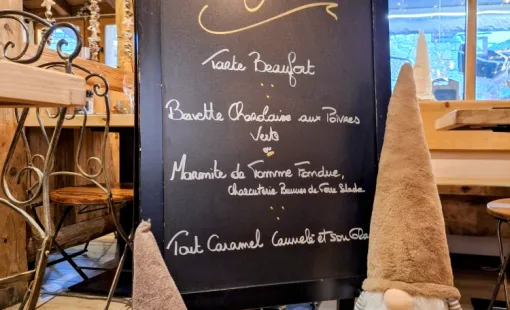 Tarte Beaufort
Bavette Charolaise aux Poivres
Verts
Marmite de Tomme Fondue,
Charcuterie Pommes de Terre Salade
Tout Caramel Cannelé et son